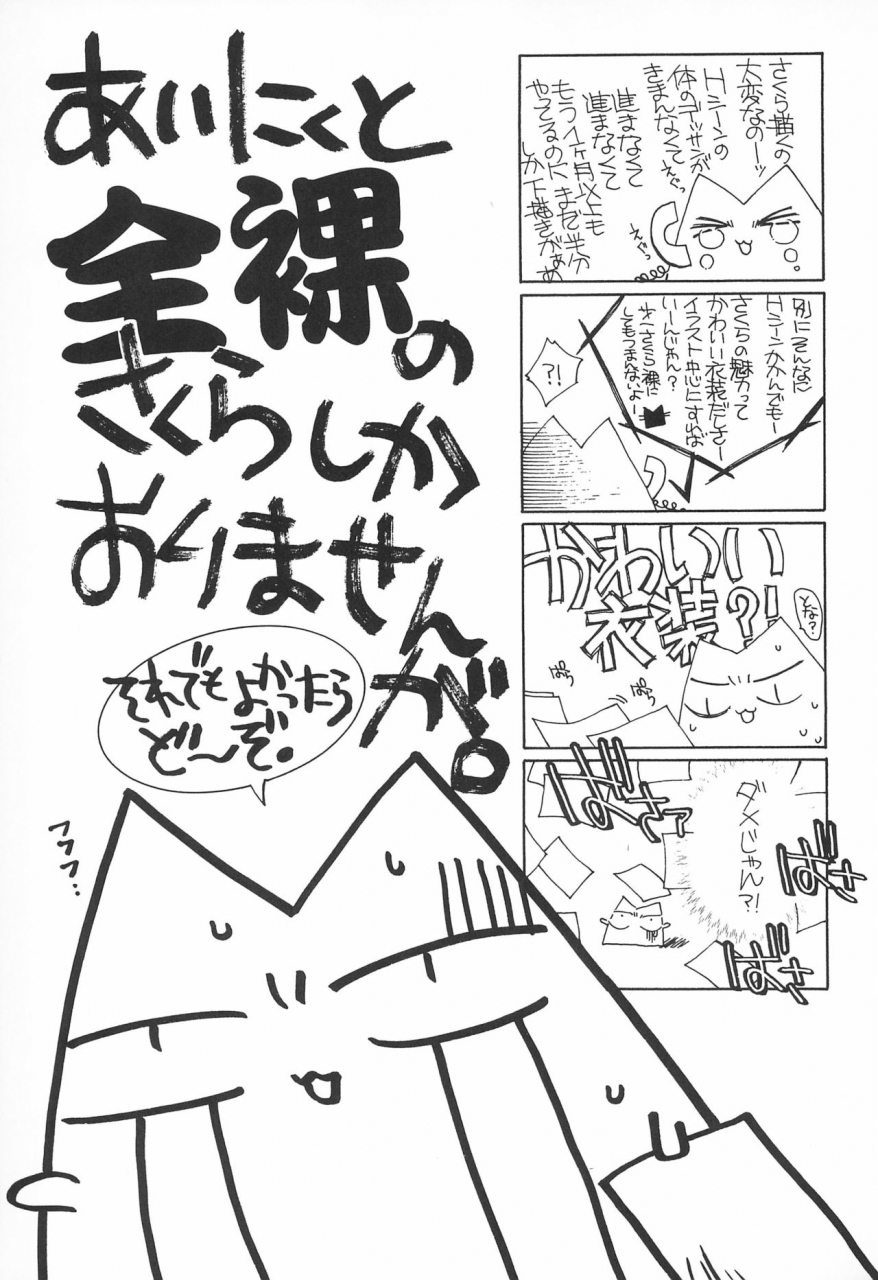 さくら描くの
大変なのーッ
Hシーンの
体のデッサンが
きまんなくて
進まなくて
進まなくて
もう1ヶ月以上も
やってるのにまだ半分
しか下描きがぁぁ
えぐっ
えぐっ
別にそんなに
Hシーンかかんでもー
さくらの魅力って
かわいい衣装だしさー
イラスト中心にすれば
いーんじゃん?
さくら裸に
してもつまんないよー
?!
かわいい
衣装?!
とな?
ぱらっ
ぱらっ
ダメじゃん?!
あいにくと
全裸の
さくらしか
おりませんが。
それでもよかったら
ど〜ぞ。
フフフ‥